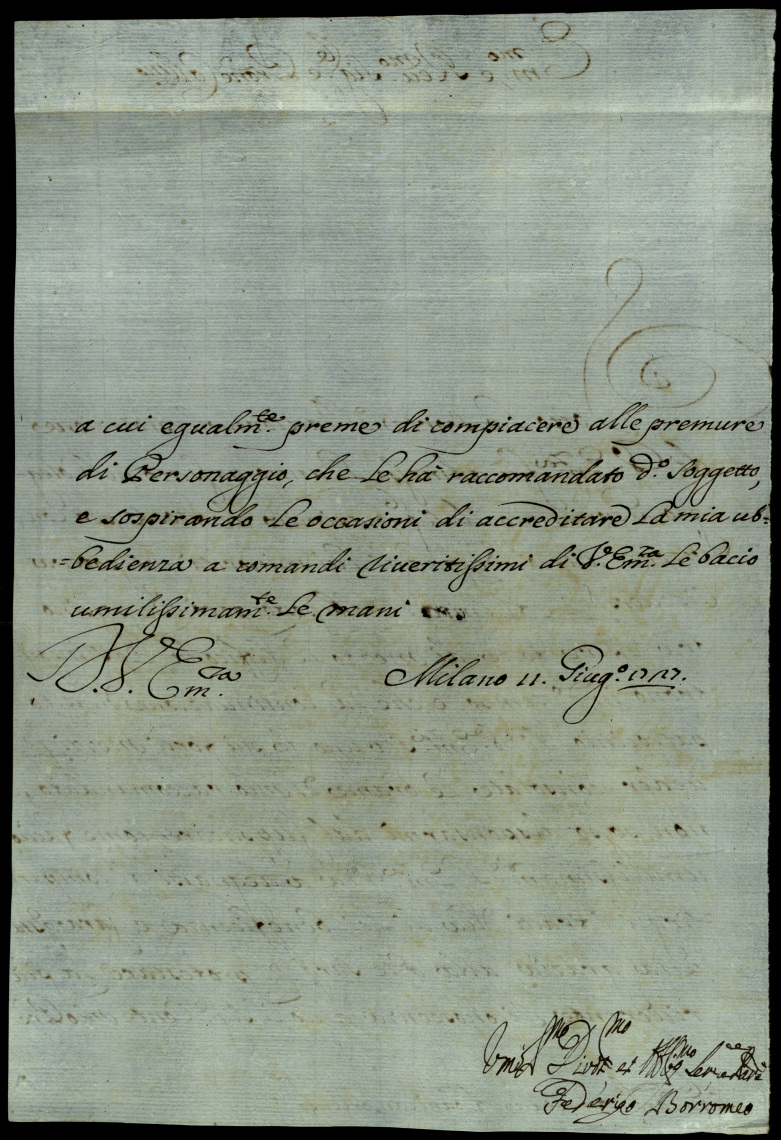 a cui egualm.te preme di compiacere alle premure
di Personaggio, che Le hà raccomandato d.o Soggetto,
e sospirando Le occasioni di accreditare La mia ub=
=bedienza a comandi riveritissimi di V.Em.za Le bacio
umilissimam.te Le mani
D.V.Em.za Milano 11. Giug.o 1727.
Umil.mo Div.mo et
Federigo Borromeo